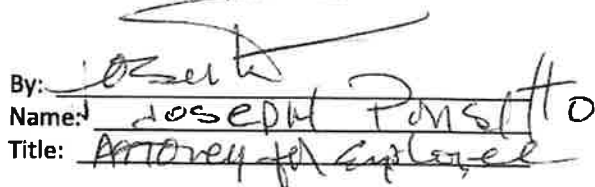 By: Joseph
Name: JOSEPH PONSITTO
Title: Attorney for Employee